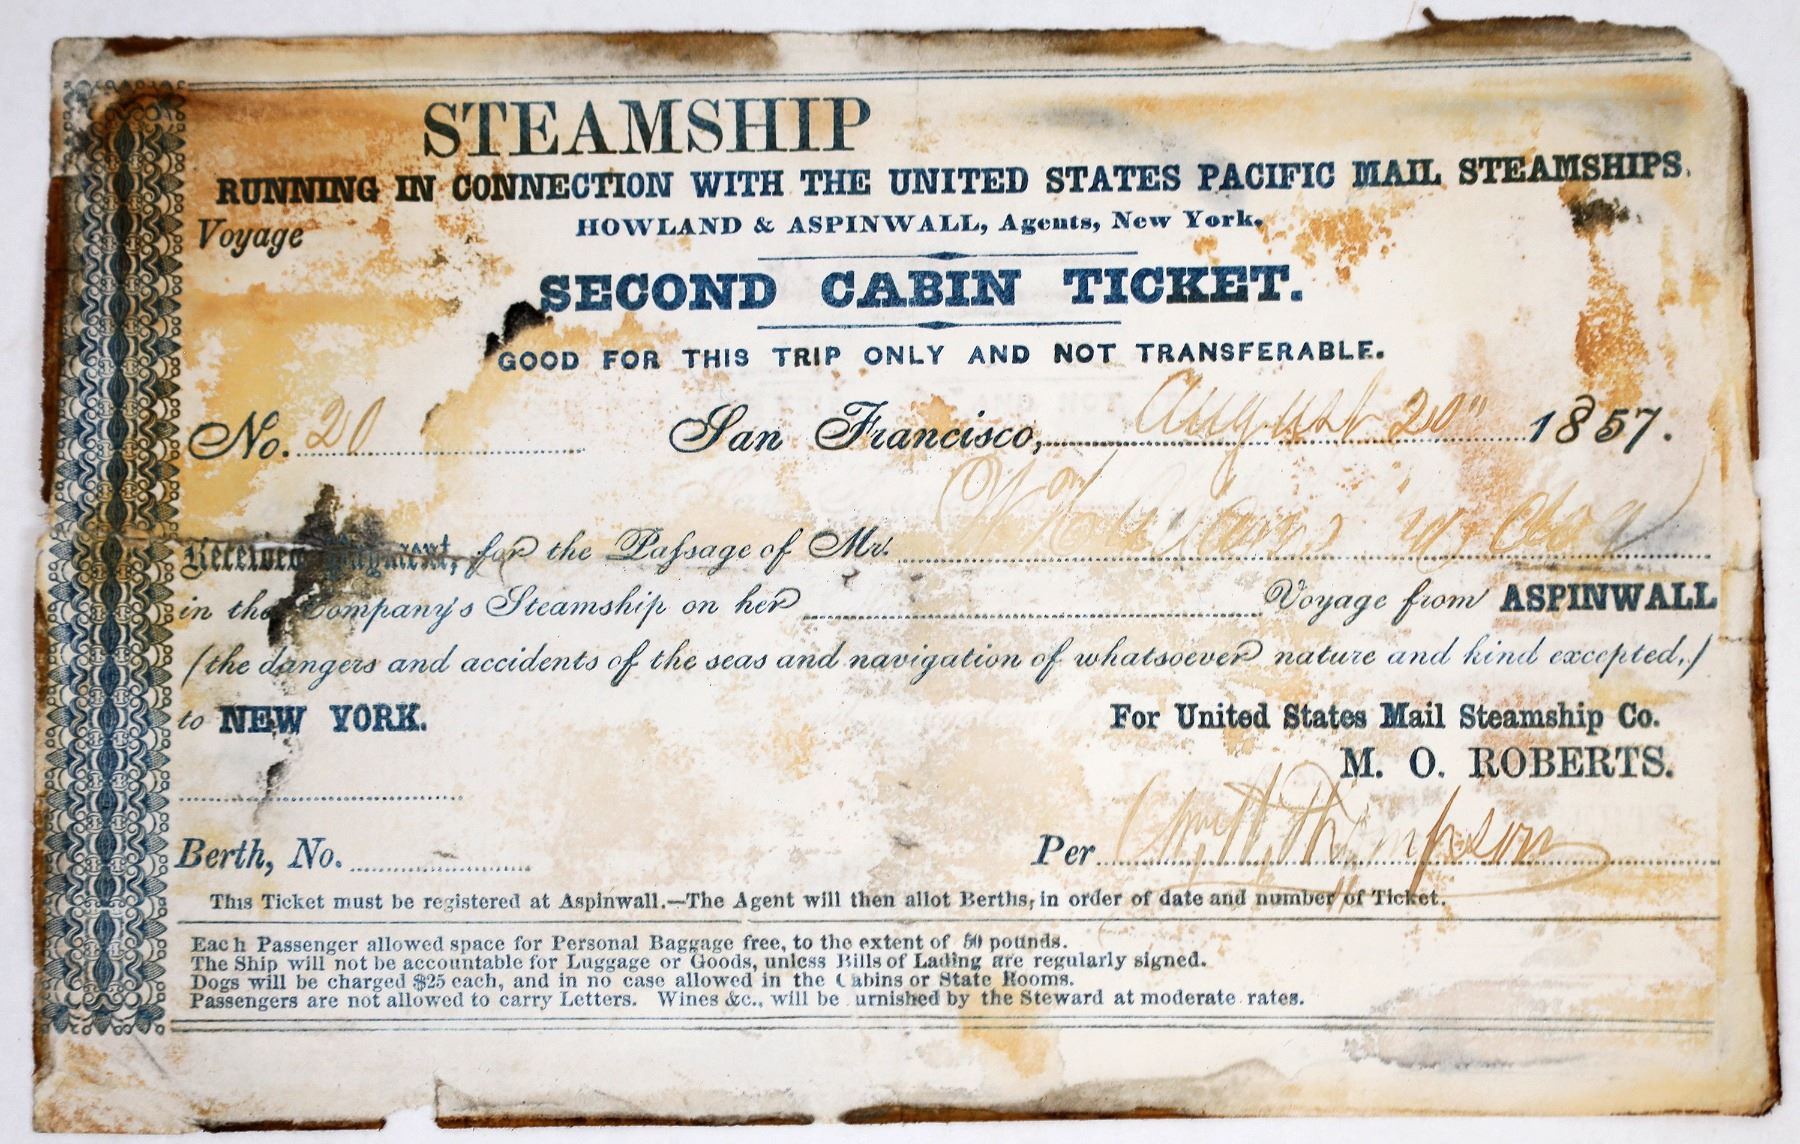 STEAMSHIP
RUNNING IN CONNECTION WITH THE UNITED STATES PACIFIC MAIL STEAMSHIPS.
HOWLAND & ASPINWALL, Agents, New York.
Voyage
SECOND CABIN TICKET.
GOOD FOR THIS TRIP ONLY AND NOT TRANSFERABLE.
No. 20 San Francisco, August 20" 1857.
Received Payment, for the Passage of Mr. Wm
in the Company's Steamship on her Voyage from ASPINWALL
(the dangers and accidents of the seas and navigation of whatsoever nature and kind excepted,)
to NEW YORK. For United States Mail Steamship Co.
M. O. ROBERTS.
Berth, No. Per Thompson
This Ticket must be registered at Aspinwall.—The Agent will then allot Berths, in order of date and number of Ticket.
Each Passenger allowed space for Personal Baggage free, to the extent of 50 pounds.
The Ship will not be accountable for Luggage or Goods, unless Bills of Lading are regularly signed.
Dogs will be charged $25 each, and in no case allowed in the Cabins or State Rooms.
Passengers are not allowed to carry Letters. Wines &c., will be urnished by the Steward at moderate rates.